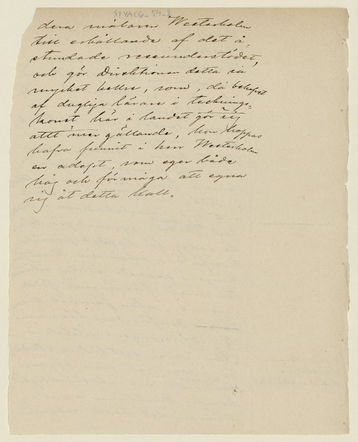 dera målaren Westerholm
till erhållande af det å
stundade reseunderstödet,
och gör Direktionen detta så
mycket hellre, som, då behofvet
af dugliga lärare i tecknings-
konst här i landet gör sig
allt mer gällande, hon hoppas
hafva funnit i herr Westerholm
en adept, som eger både
håg och förmåga att egna
sig åt detta kall.